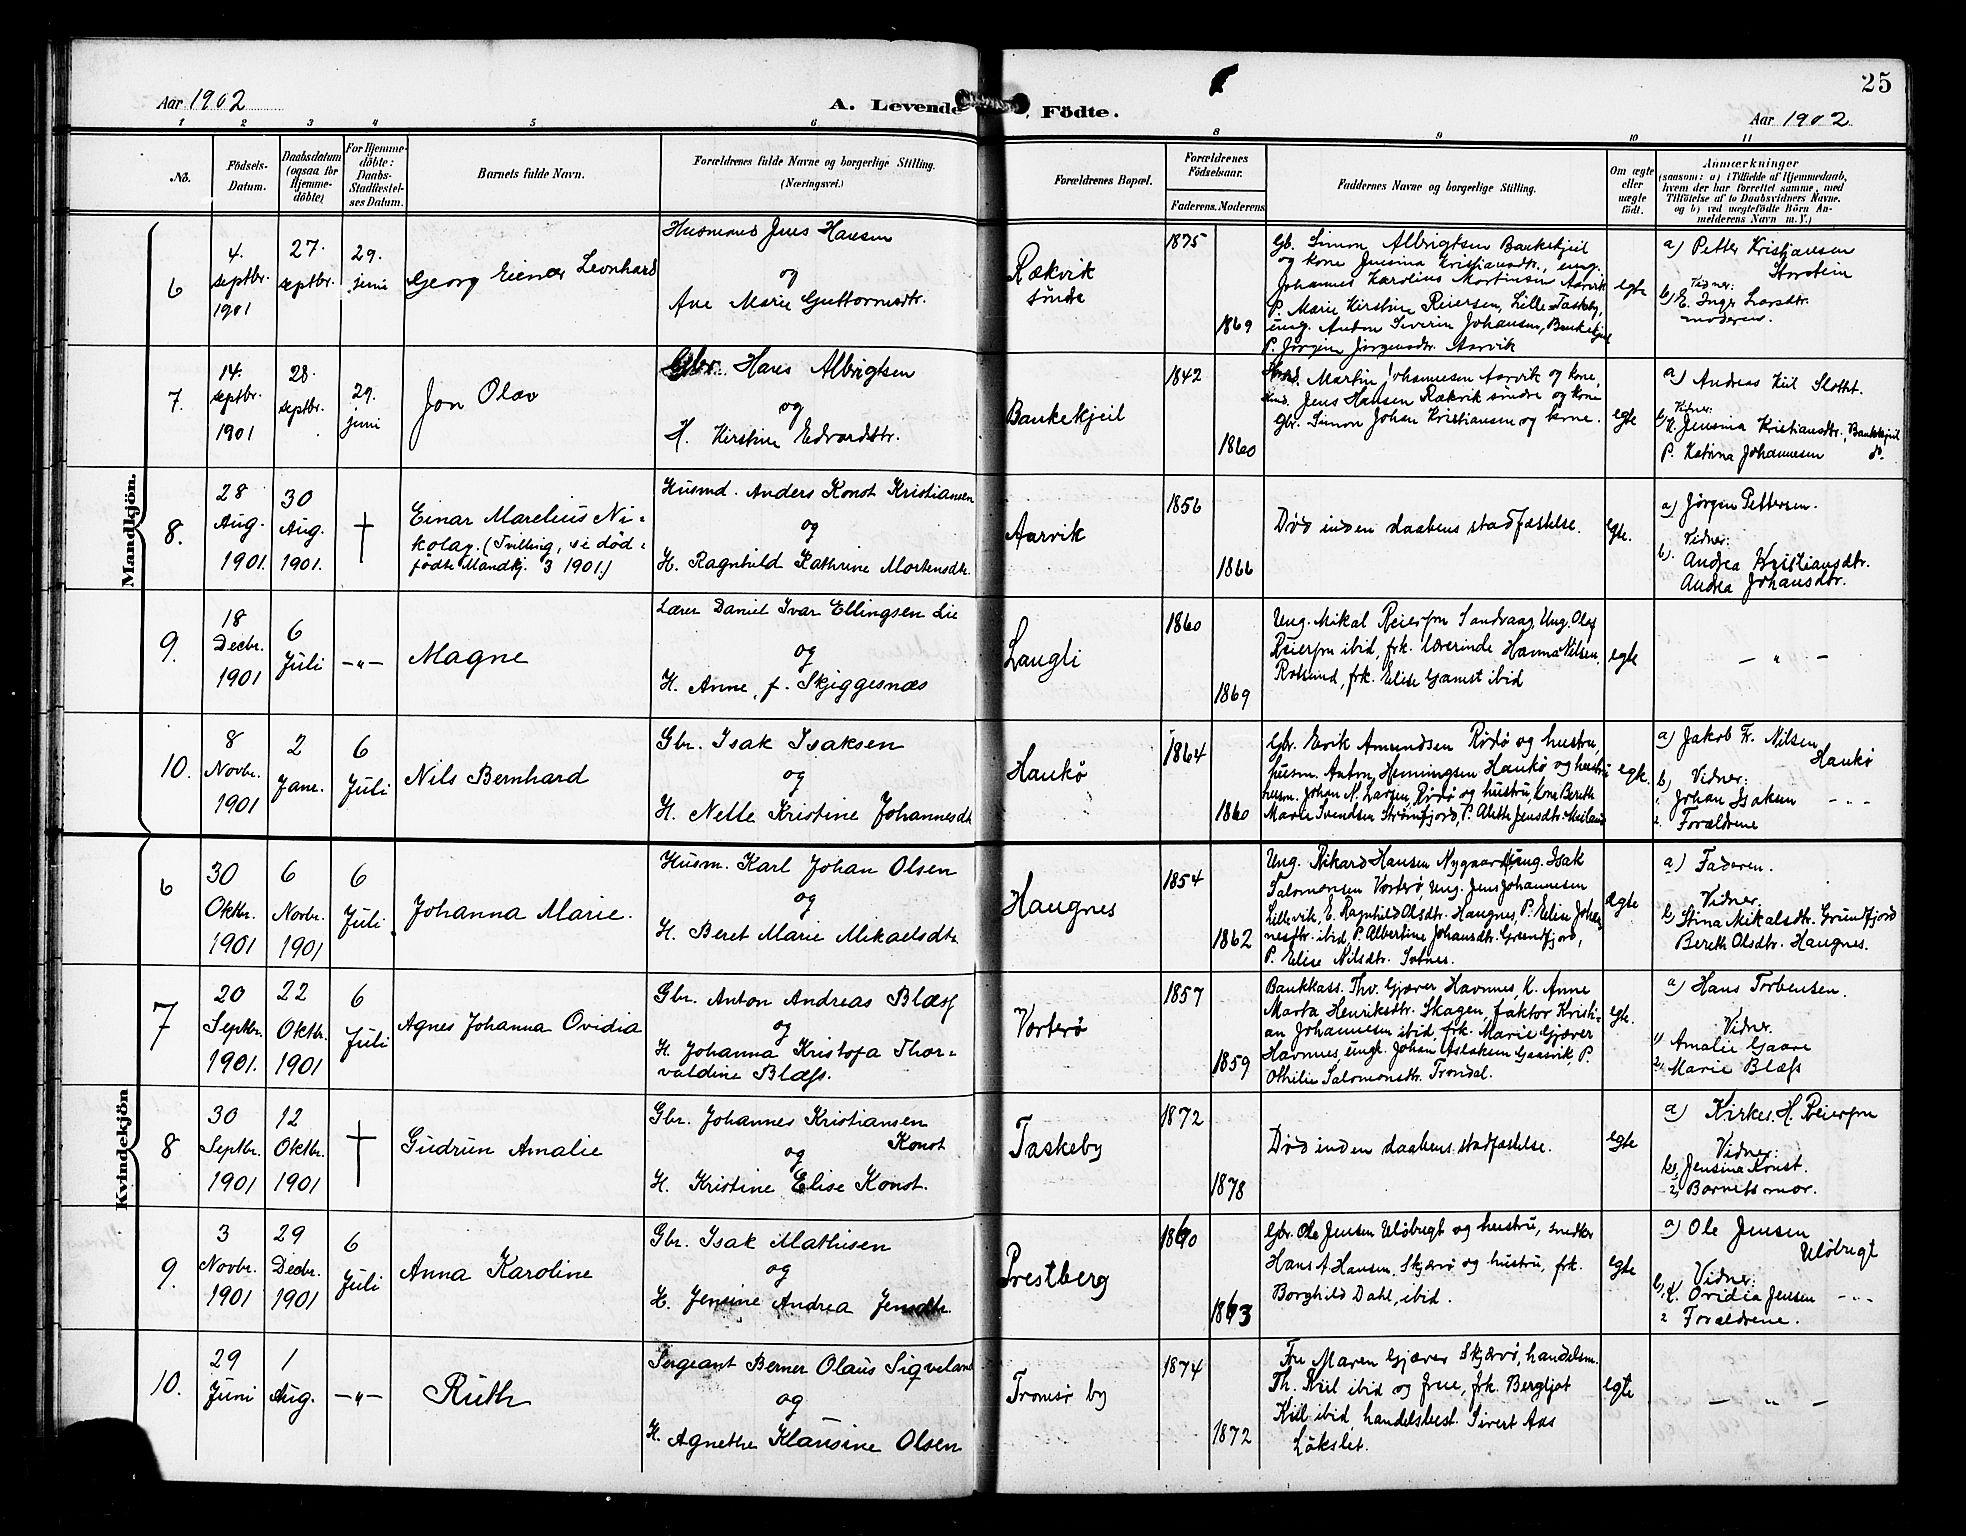 25
Aar 1902
A. Levende Födte.
Aar 1902
1 2 3 4 5 6 8 9 10 11
No.
Födsels-
Datum.
Daabsdatum
(ogsaa for
Hjemme-
döbte)
For Hjemme-
döbte:
Daabs-
Stadfæstel-
ses Datum.
Barnets fulde Navn.
Forældrenes fulde Navne og borgerlige Stilling.
(Næringsvei.)
Forældrenes Bopæl.
Forældrenes
Födselsaar.
Faderens. Moderens
Faddernes Navne og borgerlige Stilling.
Om ægte
eller
uægte
födt.
Anmærkninger
(saasom: a) i Tilfælde af Hjemmedaab,
hvem der har forrettet samme, med
Tilföielse af to Daabsvidners Navne.
og b) ved uægtefödte Börn An-
melderens Navn m. V.)
Mandkjön.
6
4.
septbr.
1901
27.
septbr.
29.
juni
Georg Einer Leonhard
Husmand Jens Hansen
og
Ane Marie Guttormsdtr.
Rækvik
søndre
1875
1869
Gb. Simon Albrigtsen Bankekjeil
og kone Jensina Kristiansdtr., ung.
Johannes Karolius Mortinsen Aarvik
P. Marie Kirstine Reiersen, Lille Taskeby,
ung. Anton Severin Johansen, Bankekjeil
P. Jørgine Jørgensdtr. Aarvik
egte
a) Petter Kristiansen
Storstein
Vidner:
b) E. Inger Larsdtr.
moderen.
7.
14.
septbr.
1901
28.
septbr.
29.
juni
Jon Olav
Gbr. Hans Albrigtsen
og
H. Kirstine Edvardsdtr.
Bankekjeil
1842
1860
Husmd. Martin Johannesen Aarvik og kone,
Husmd. Jens Hansen Rækvik søndre og kone
Gbr. Simon Johan Kristiansen og kone.
egte
a) Andreas Kiil Slottet.
Vidner:
b) K. Jensina Kristiansdtr., Bankekjeil
P. Katrina Johannesen do.
8.
28
Aug.
1901.
30
Aug.
1901.
†
Einar Marelius Ni-
kolay. (Tvilling, se død-
fødte Mandkj. 3 1901.)
Husmd. Anders Konst Kristiansen
og
H. Ragnhild Kathrine Mortensdtr.
Aarvik
1856
1866
Død inden daabens stadfæstelse.
egte.
a) Jørgen Pettersen.
Vidner:
b). Andrea Kristiansdtr.
Andrea Johansdtr.
9.
18
Decbr.
1901
6
Juli
—"—
Magne
Lærer Daniel Ivar Ellingsen Lie
og
H. Anne, f. Skjeggesnæs
Langli
1860
1869
Ung. Mikal Reiersen Sandvaag, Ung. Olaf
Reiersen ibid, frk. lærerinde Hanna Nilsen,
Rotsund, frk. Elise Gamst ibid
egte
— " —
10.
8
Novbr.
1901
2
Jane.
6
Juli
Nils Bernhard
Gbr. Isak Isaksen
og
H. Nelle Kristine Johannesdtr
Haukø
1864
1860
Gbr. Erik Amundsen Rødø og hustru,
husm. Anton Henningsen Haukø og hustru
husm. Johan N. Larsen, Rødø og hustru, kone Bereth
Marie Svendsen Strømfjord, P. Alette Jensdtr. Meiland
egte.
a) Jakob Fr. Nilsen
Haukø
b) Vidner:
1. Johan Isaksen —"—
2. Forældrene
Kvindekjön
6
30
Oktbr.
1901
6
Novbr.
1901
6
Juli
Johanna Marie.
Husm. Karl Johan Olsen
og
H. Beret Marie Mikaelsdtr
Haugnes
1854
1862
Ung. Rikard Hansen Nygaard, ung. Isak
Salomonsen Vorterø, ung. Jens Johannesen
Lillevik, E. Ragnhild Olsdtr. Haugnes, P. Eline Johan-
nesdtr. ibid, P. Albertine Johansdtr. Grundfjord,
P. Elise Nilsdtr. Sotnes.
ægte
a) Faderen.
Vidner.
b) Stina Mikalsdtr. Grundfjord
Bereth Olsdtr. Haugnes.
7
20
Septbr.
1901.
22
Oktbr.
1901
6
Juli
Agnes Johanna Ovidia
Gbr. Anton Andreas Blæss
og
H. Johanna Kristofa Thor-
valdine Blæss.
Vorterø
1857
1859
Bankkass. Thv. Gjæver Havnnes, K. Anne
Marta Henriksdtr. Skagen, faktor Kristi-
an Johannesen ibid, frk. Marie Gjæver
Havnnes, ungk. Johan Aslaksen Gaasvik, P.
Othilie Salomonsdtr. Trondal.
egte.
a) Hans Torbensen.
Vidner.
1) Amalie Gaare
2) Marie Blæss
8
30
Septbr.
1901
12
Oktbr.
1901
†
Gudrun Amalie
Gbr. Johannes Kristiansen
Konst
og
H. Kristine Elise Konst.
Taskeby
1872
1878
Død inden daabens stadfæstelse.
egte
a) Kirkes. H. Reiersen
Vidner:
b) 1, Jensina Konst.
2) Barnets mor.
9.
3
Novbr.
1901
29
Decbr.
1901
6
Juli
Anna Karoline
Gbr. Isak Mathisen
og
H. Jensine Andrea Jensdtr.
Prestberg
1860
1863
Gbr. Ole Jensen Uløbugt og hustru, snedker
Hans A Hansen, Skjærvø og hustru, frk.
Borghild Dahl, ibid.
egte
a) Ole Jensen
Uløbugt
Vidner:
b) K. Ovidia Jensen —"—
2 Forældrene.
10.
29
Juni
1
Aug.
—"—
Ruth
Sergeant Berner Olaus Sigveland
og
H. Agnethe Klausine Olsen
Tromsø by
1874
1872
Fru Maren Gjæver Skjærvø, handelsm.
Th. Kiil ibid og frue, frk. Bergljot
Kiil ibid, handelsbest. Sivert Aas
Løkslet.
egte
— " —